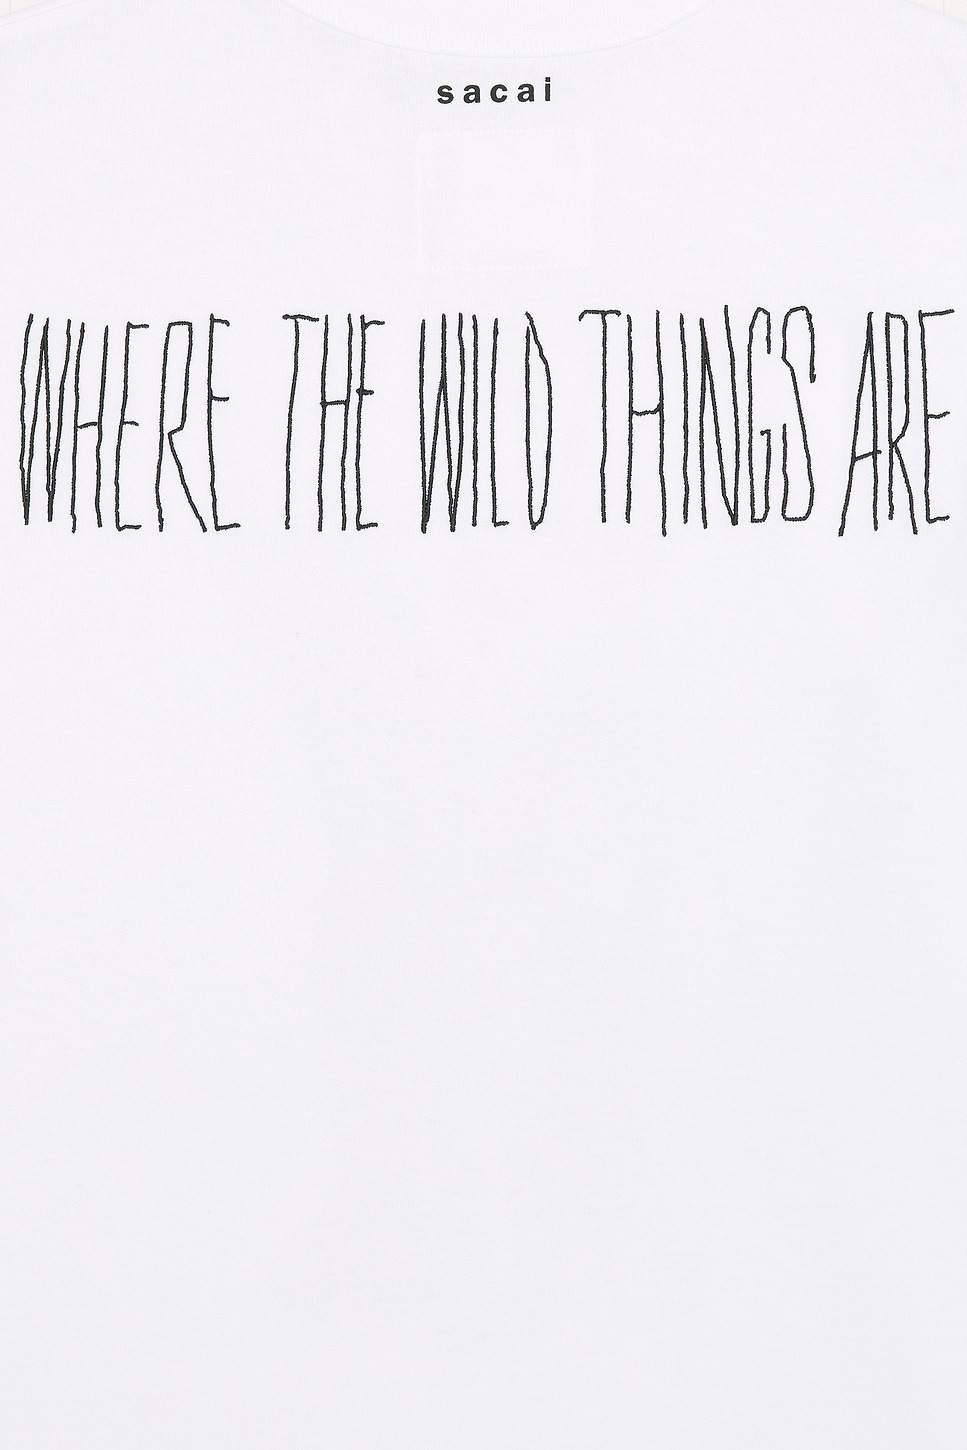 sacai
WHERE THE WILD THINGS ARE